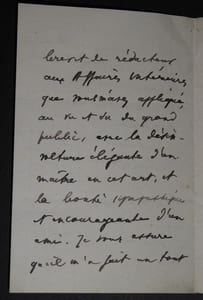 brevet de rédacteur
aux Affaires intérieures,
que vous m'avez appliqué,
au vu et su du grand
public, avec la désin-
volture élégante d'un
maître en cet art, et
la bonté sympathique
et encourageante d'un
ami. Je vous assure
qu'il m'a fait un tout